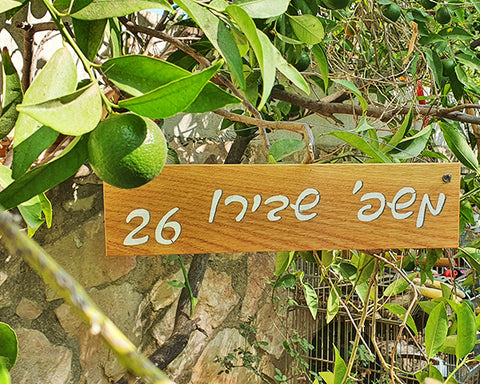 משפ' שבירו 26